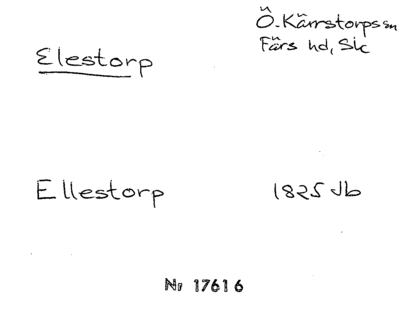 Ö. Kärrstorps sn
Färs hd, Sk
Elestorp
Ellestorp 1825 Jb
Nr 17616